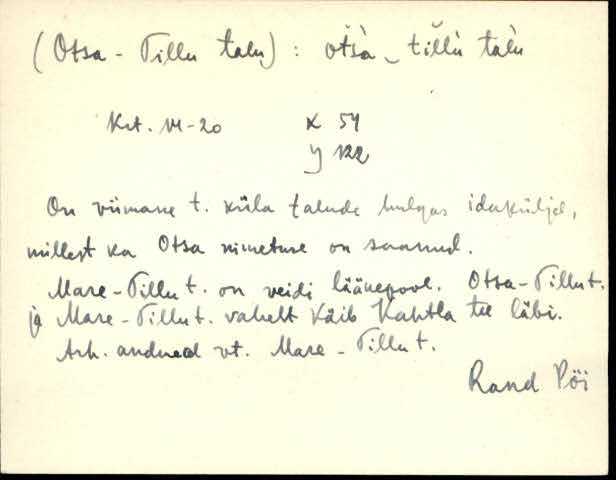 (Otsa-Tillu talu) : ot̆sà ‿ tĭllù talù
Krt. VI-20 X 54
y 122
On viimane t. küla talude hulgas idaküljel,
millest ka Otsa nimetuse on saanud.
Mare-Tillu t. on veidi läänepool. Otsa-Tillu t.
ja Mare-Tillu t. vahelt käib Kahtla tee läbi.
Arh. andmed vt. Mare-Tillu t.
Rand Pöi